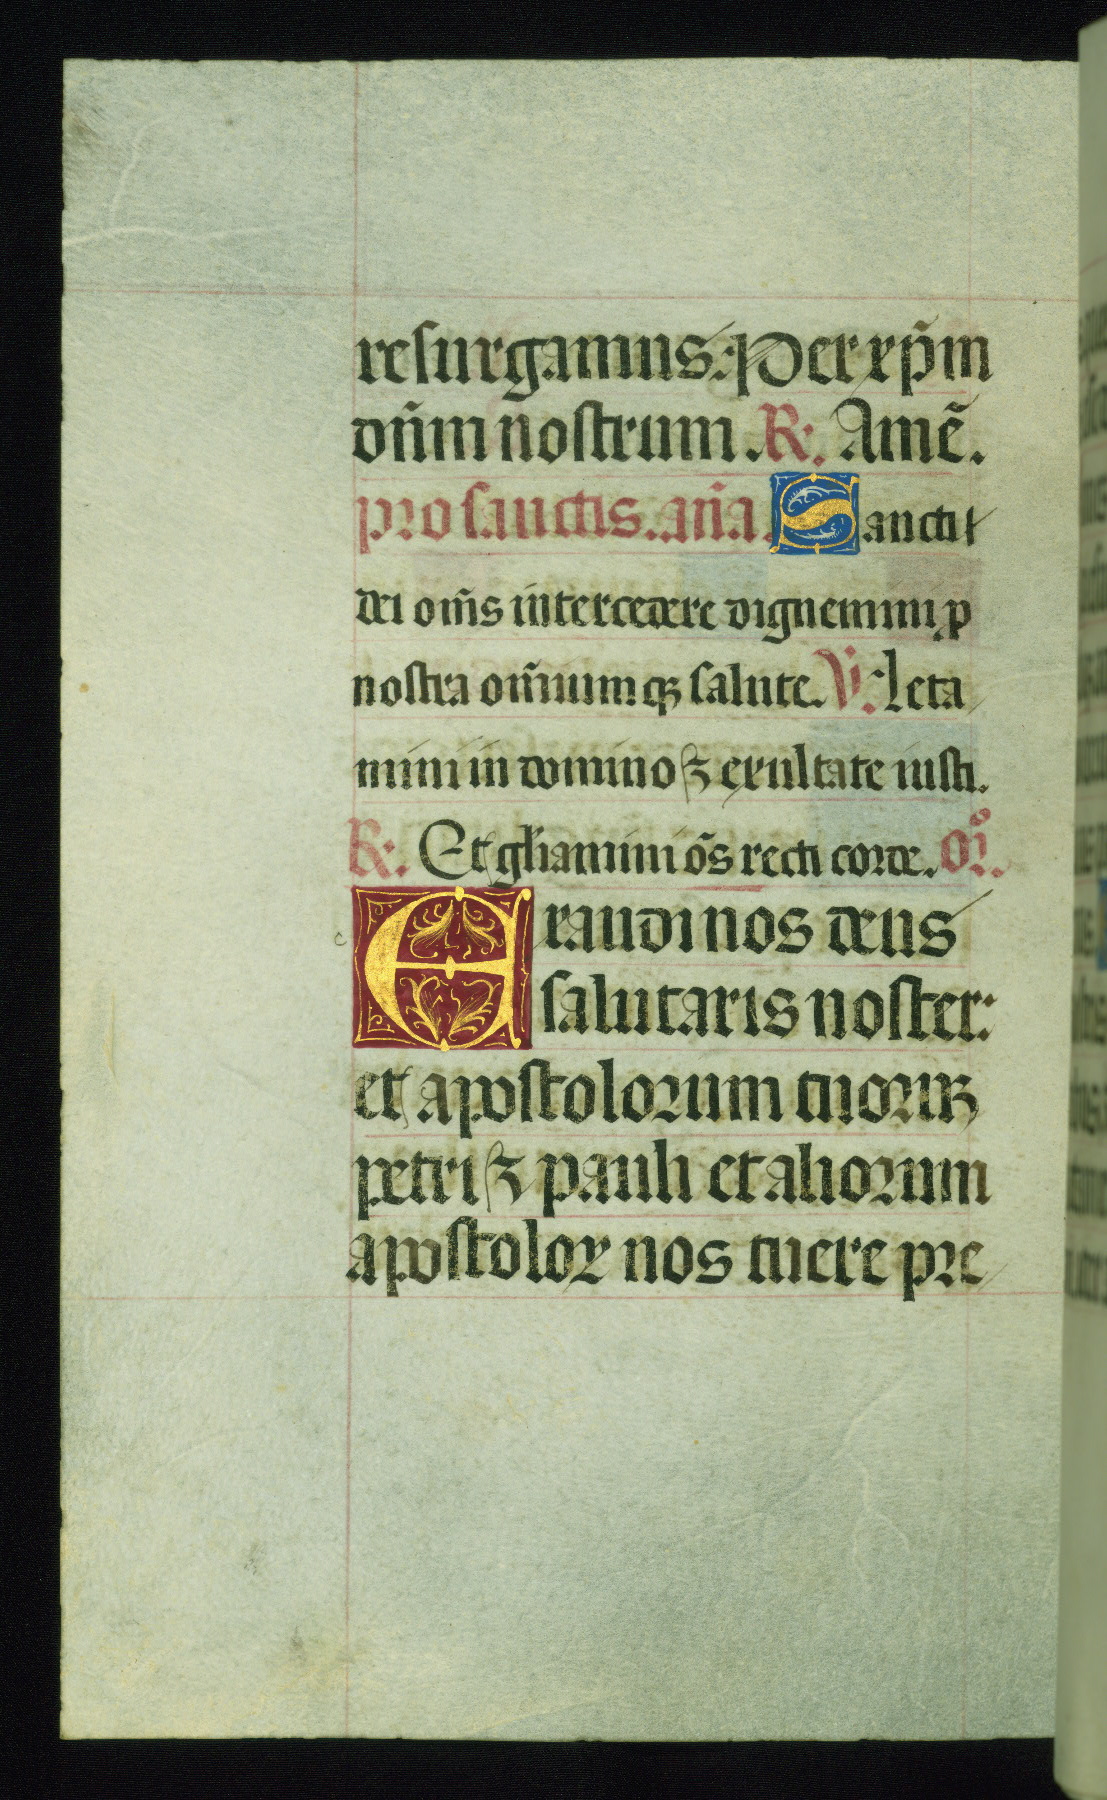 resurgamus: Per xp̃m
dñm nostrum. R. Amẽ.
pro sanctis. aña. Sancti
dei om̃s intercedere dignemini p
nostra om̃iumqꝫ salute. V. leta
mini in domino ⁊ exultate iusti.
R. Et gl̃iamini õs recti corde. or̃.
Exaudi nos deus
salutaris noster:
et apostolorum tuorꝝ
petri ⁊ pauli et aliorum
apostoloꝝ nos tuere pre